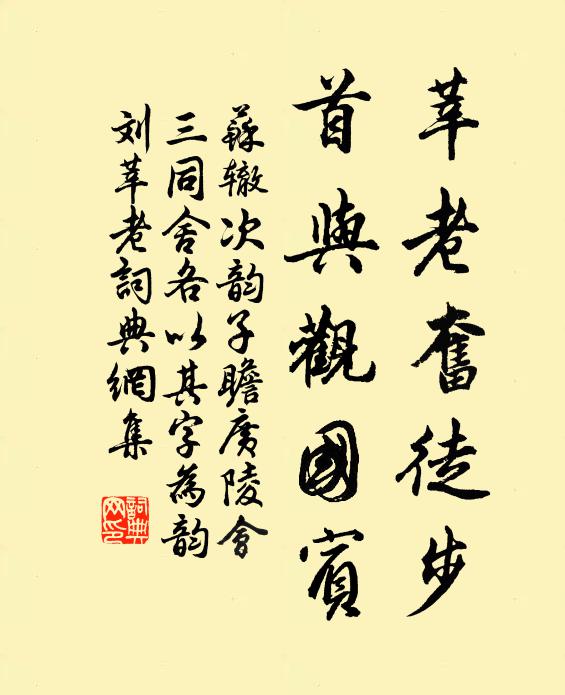 莘老奮徒步
首與觀國賓
蘇辙次韵子瞻廣陵會
三同舍各以其字為韵
刘莘老詞典網集
詞典网印